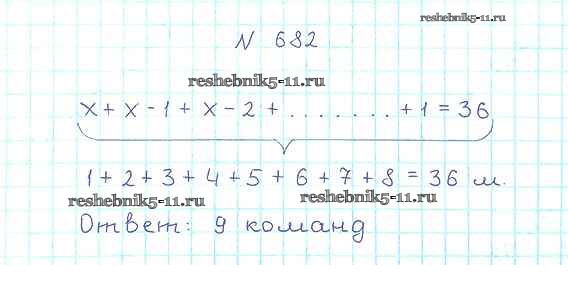 reshebnik5-11.ru
N 682
reshebnik5-11.ru
x + x - 1 + x - 2 + ........ + 1 = 36
1 + 2 + 3 + 4 + 5 + 6 + 7 + 8 = 36 м.
reshebnik5-11.ru reshebnik5-11.ru
Ответ: 9 команд